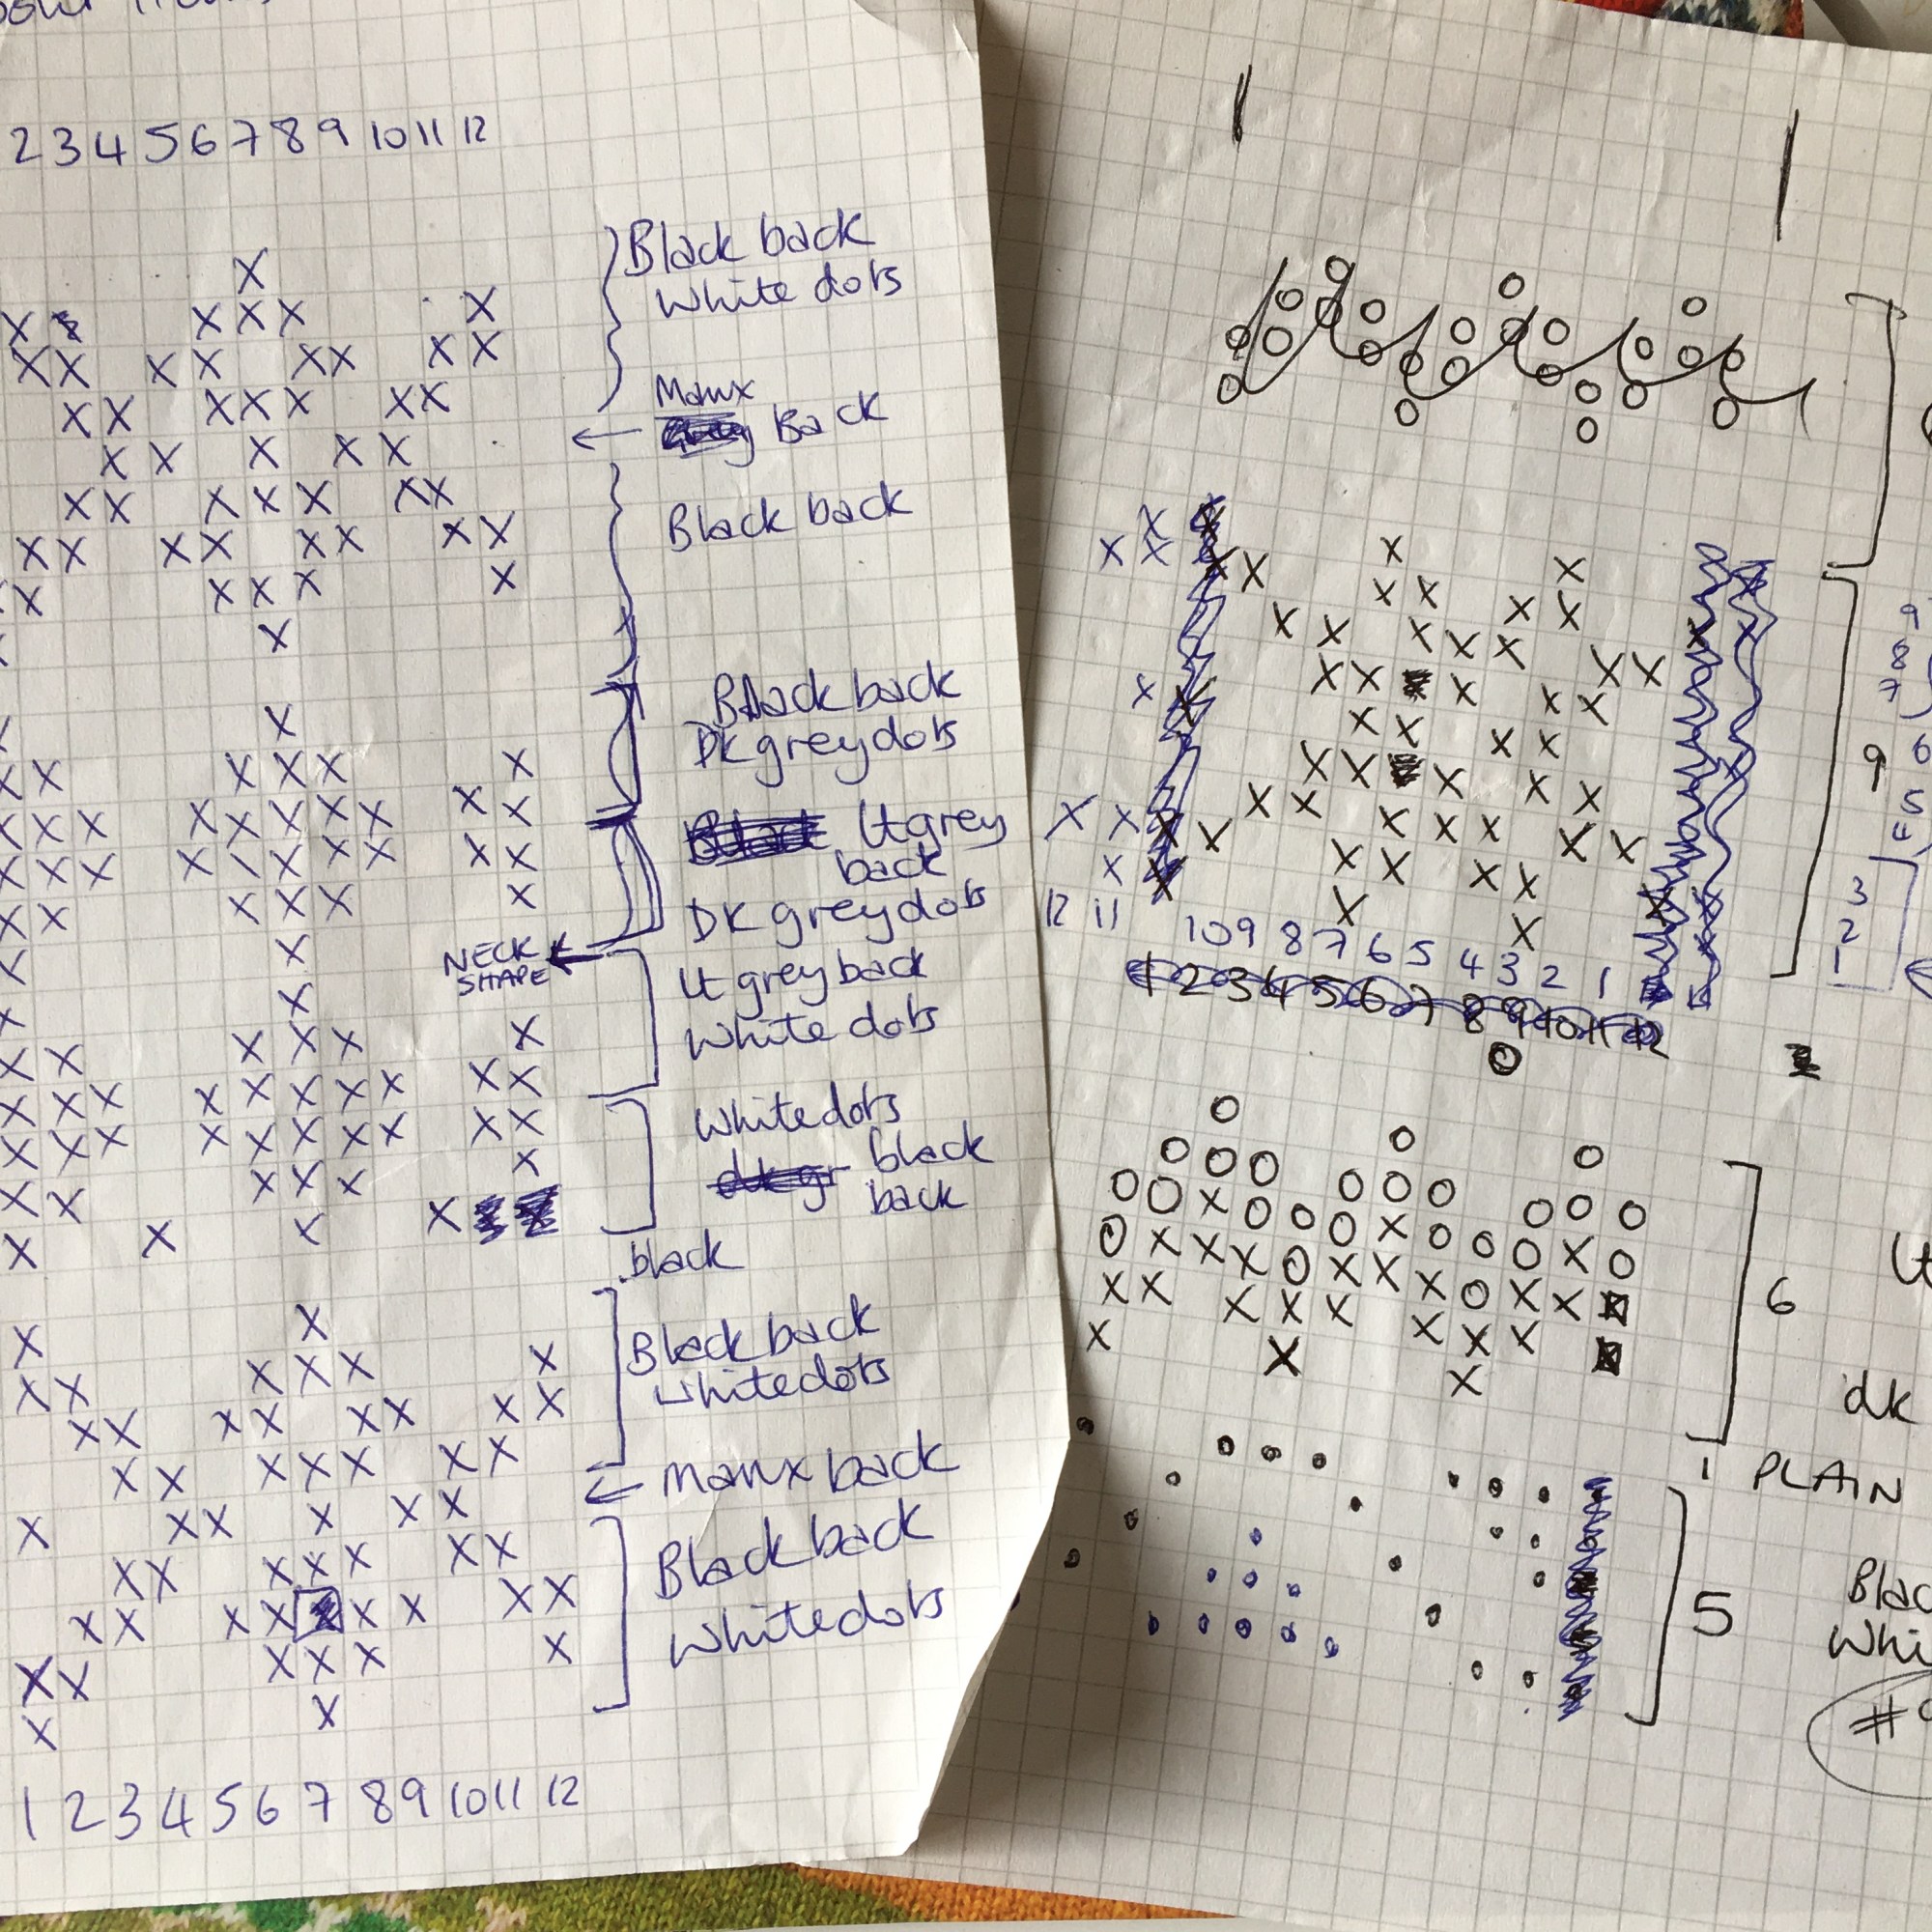 2 3 4 5 6 7 8 9 10 11 12
Black back
White dots
Manx
Back
Black back
Black back
Dk grey dots
Lt grey
back
DK grey dots
NECK
SHAPE
Lt grey back
White dots
White dots
black
back
black
Black back
whitedots
Manx back
Black back
Whitedots
1 2 3 4 5 6 7 8 9 10 11 12
9
8
7
6
9
5
4
3
2
1
12 11 10 9 8 7 6 5 4 3 2 1
1 2 3 4 5 6 7 8 9 10 11 12
6
dk
1 PLAIN
5